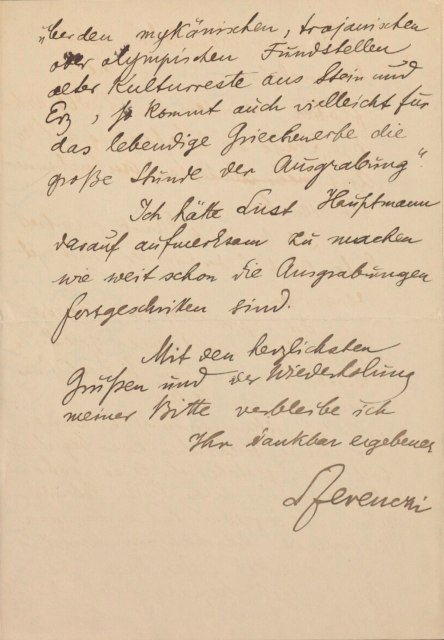 über den mykänischen, trojanischen
oder olympischen Fundstellen
alter Kulturreste aus Stein und
Erz, so kommt auch vielleicht für
das lebendige Griechenerbe die
große Stunde der Ausgrabung“
Ich hätte Lust Hauptmann
darauf aufmerksam zu machen
wie weit schon die Ausgrabungen
fortgeschritten sind.
Mit den herzlichsten
Grüßen und der Wiederholung
meiner Bitte verbleibe ich
Ihr dankbar ergebener
Ferenczi